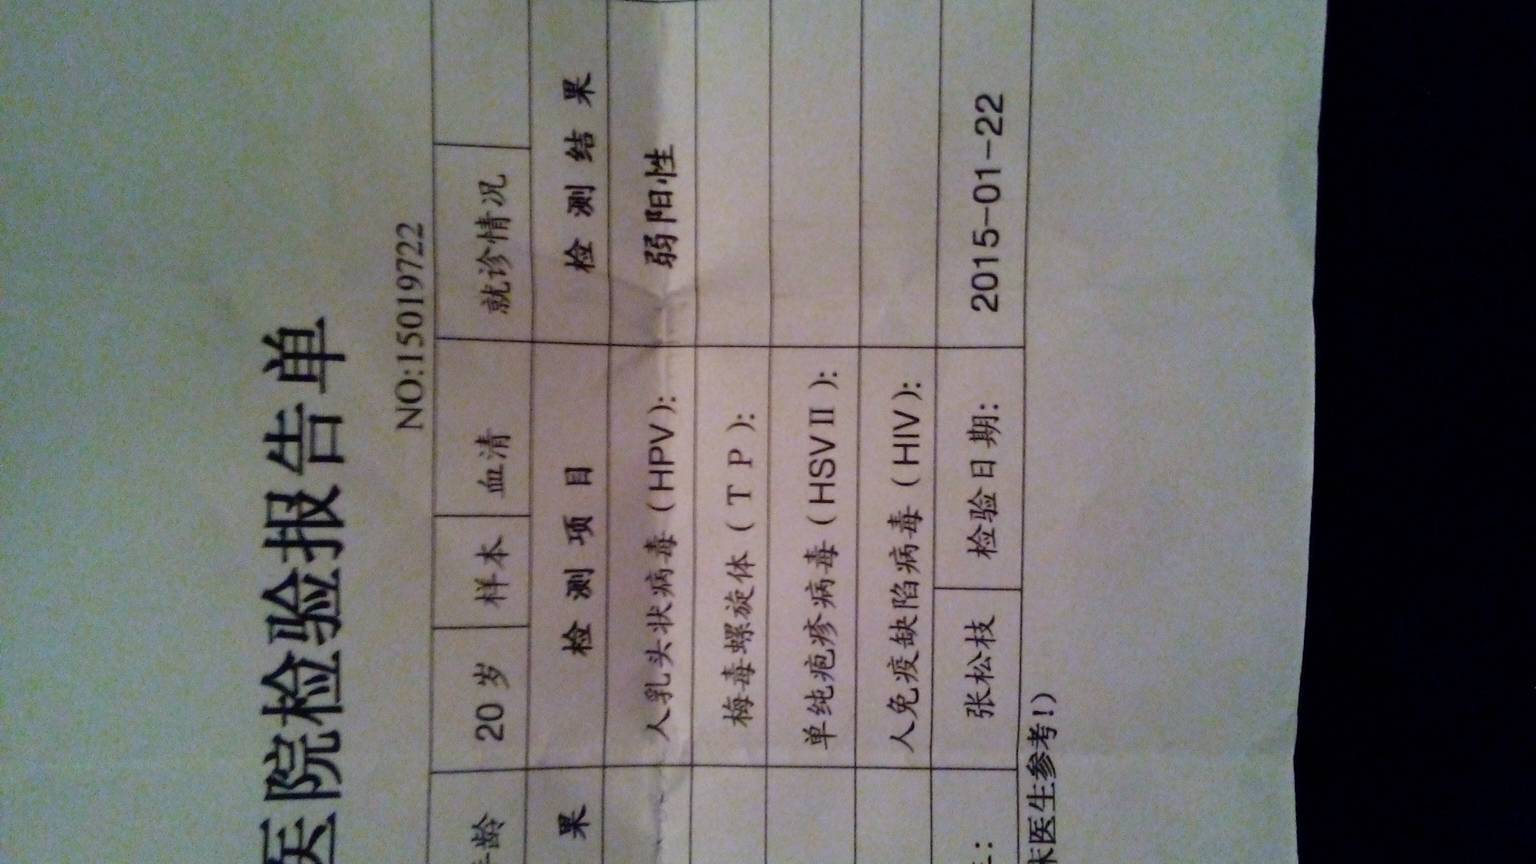 医院检验报告单
NO:15019722
年龄 20岁 样本 血清 就诊情况
果 检测项目 检测结果
人乳头状病毒（HPV）： 弱阳性
梅毒螺旋体（TP）：
单纯疱疹病毒（HSVⅡ）：
人免疫缺陷病毒（HIV）：
： 张松枝 检验日期： 2015-01-22
床医生参考!）